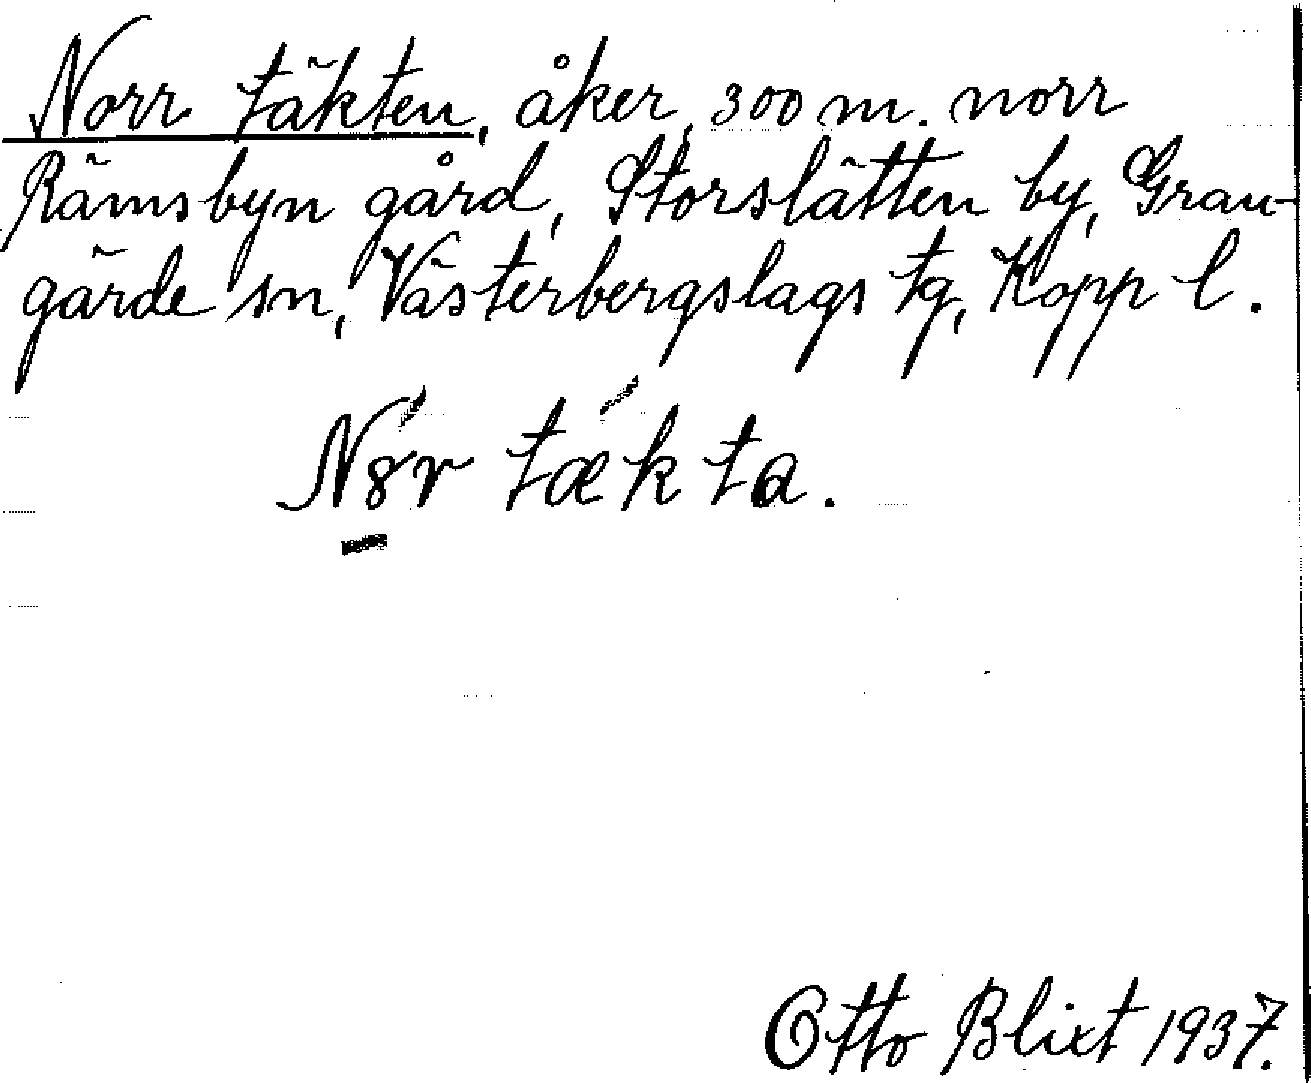 Norr täkten, åker, 300 m. norr
Rämsbyn gård, Storslätten by, Gran-
gärde sn, Västerbergslags tg, Kopp l.
Nȣ́r tǽk ta.
Otto Blixt 1937.